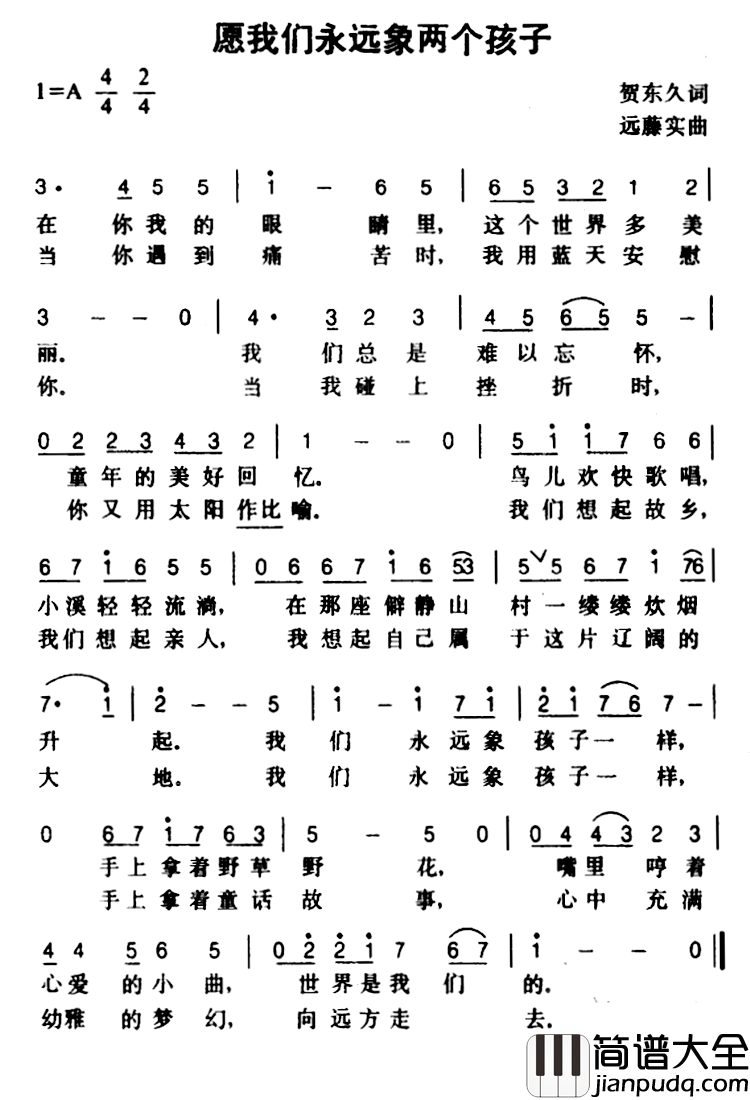 愿我们永远象两个孩子
1=A 4/4 2/4
贺东久词
远藤实曲
3· 4 5 5 | i - 6 5 | 6 5 3 2 1 2 |
在 你我的 眼 睛里, 这个世界多美
当 你遇到 痛 苦时, 我用蓝天安慰
3 - - 0 | 4· 3 2 3 | 4 5 6 5 5 - |
丽. 我 们总是 难以忘 怀,
你. 当 我碰上 挫折 时,
0 2 2 3 4 3 2 | 1 - - 0 | 5 i i 7 6 6 |
童年的美好回 忆. 鸟儿欢快歌唱,
你又用太阳作比 喻. 我们想起故乡,
6 7 i 6 5 5 | 0 6 6 7 i 6 53 | 5 ∨ 5 6 7 i 76 |
小溪轻轻流淌, 在那座僻静山 村一缕缕炊烟
我们想起亲人, 我想起自己属 于这片辽阔的
7· i | 2 - - 5 | i - i 7 i | 2 i 7 6 7 - |
升 起. 我 们 永远象 孩子一 样,
大 地. 我 们 永远象 孩子一 样,
0 6 7 i 7 6 3 | 5 - 5 0 | 0 4 4 3 2 3 |
手上拿着野草 野 花, 嘴里 哼着
手上拿着童话 故 事, 心中 充满
4 4 5 6 5 | 0 2 2 i 7 6 7 | i - - 0 ‖
心爱 的小曲, 世界是我 们 的.
幼雅 的梦幻, 向远方走 去.
简谱大全
jianpudq.com